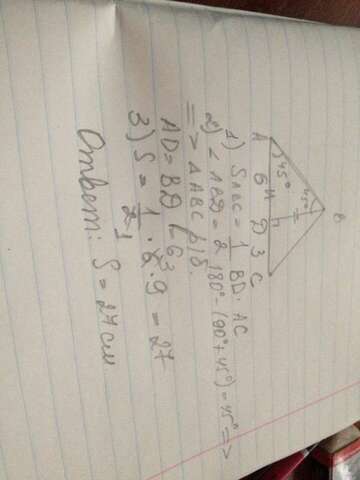 B
45°
45°
A 6 H D 3 C
1) S ABC = 1/2 BD · AC
2) ∠ABD = 180° - (90° + 45°) = 45° =>
=> △ABC р/б.
AD = BD (6)
3) S = 1/2 · 6 · 9 = 27
3
1
Ответ: S = 27 см